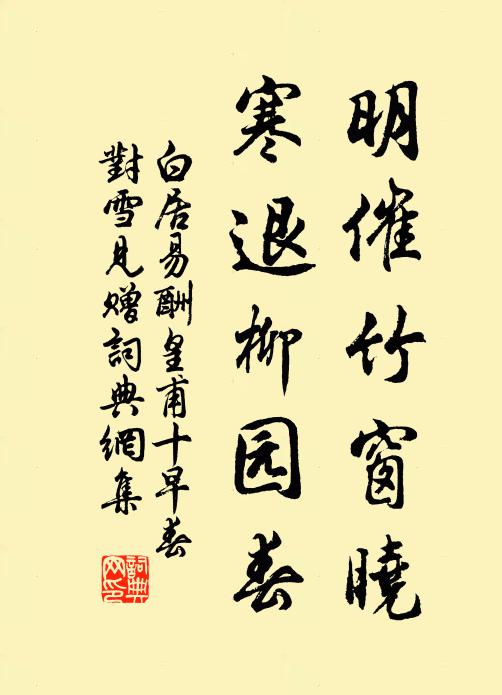 明催竹窗曉
寒退柳园春
白居易酬皇甫十早春
對雪見贈詞典網集
詞典
网印